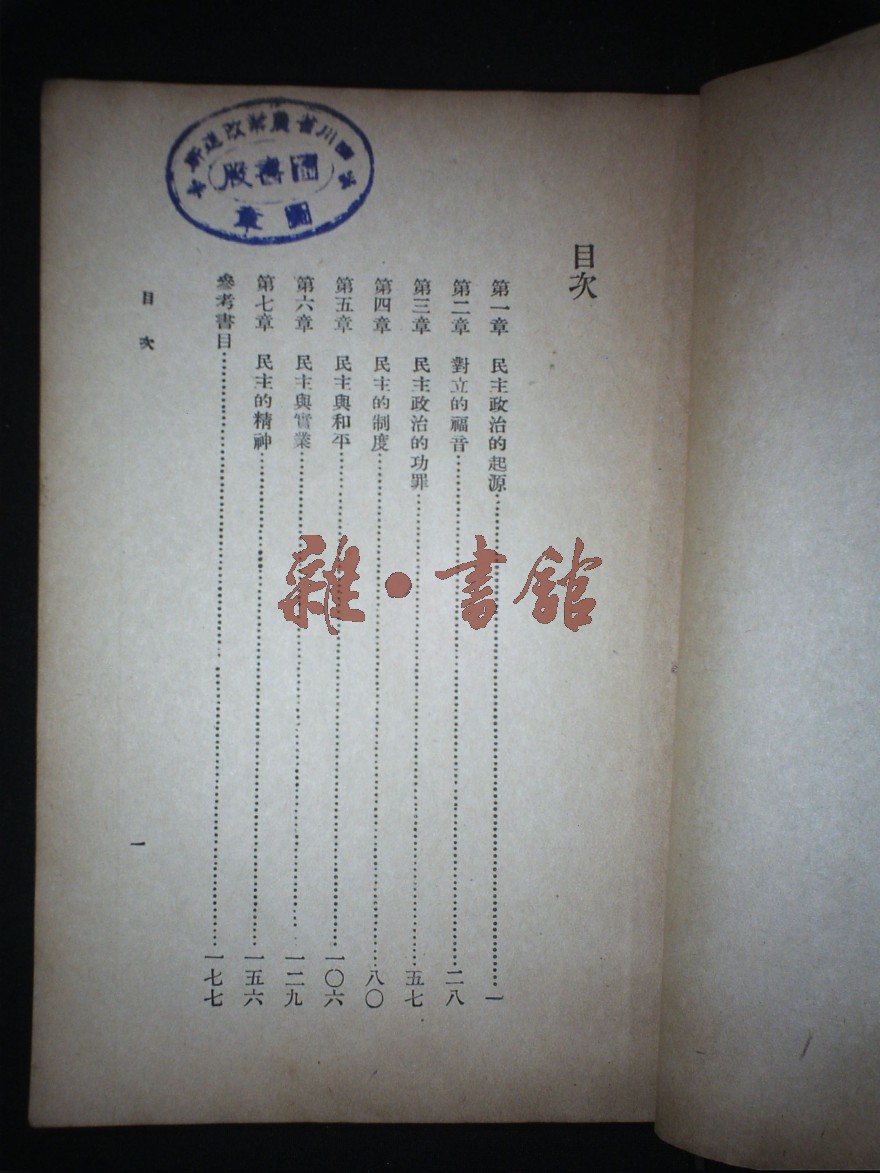 目次
第一章 民主政治的起源……一
第二章 對立的福音……二八
第三章 民主政治的功罪……五七
第四章 民主的制度……八〇
第五章 民主與和平……一〇六
第六章 民主與實業……一二九
第七章 民主的精神……一五六
參考書目……一七七
目次
一
川省農業改進所
圖書股
圖章
雜·書館